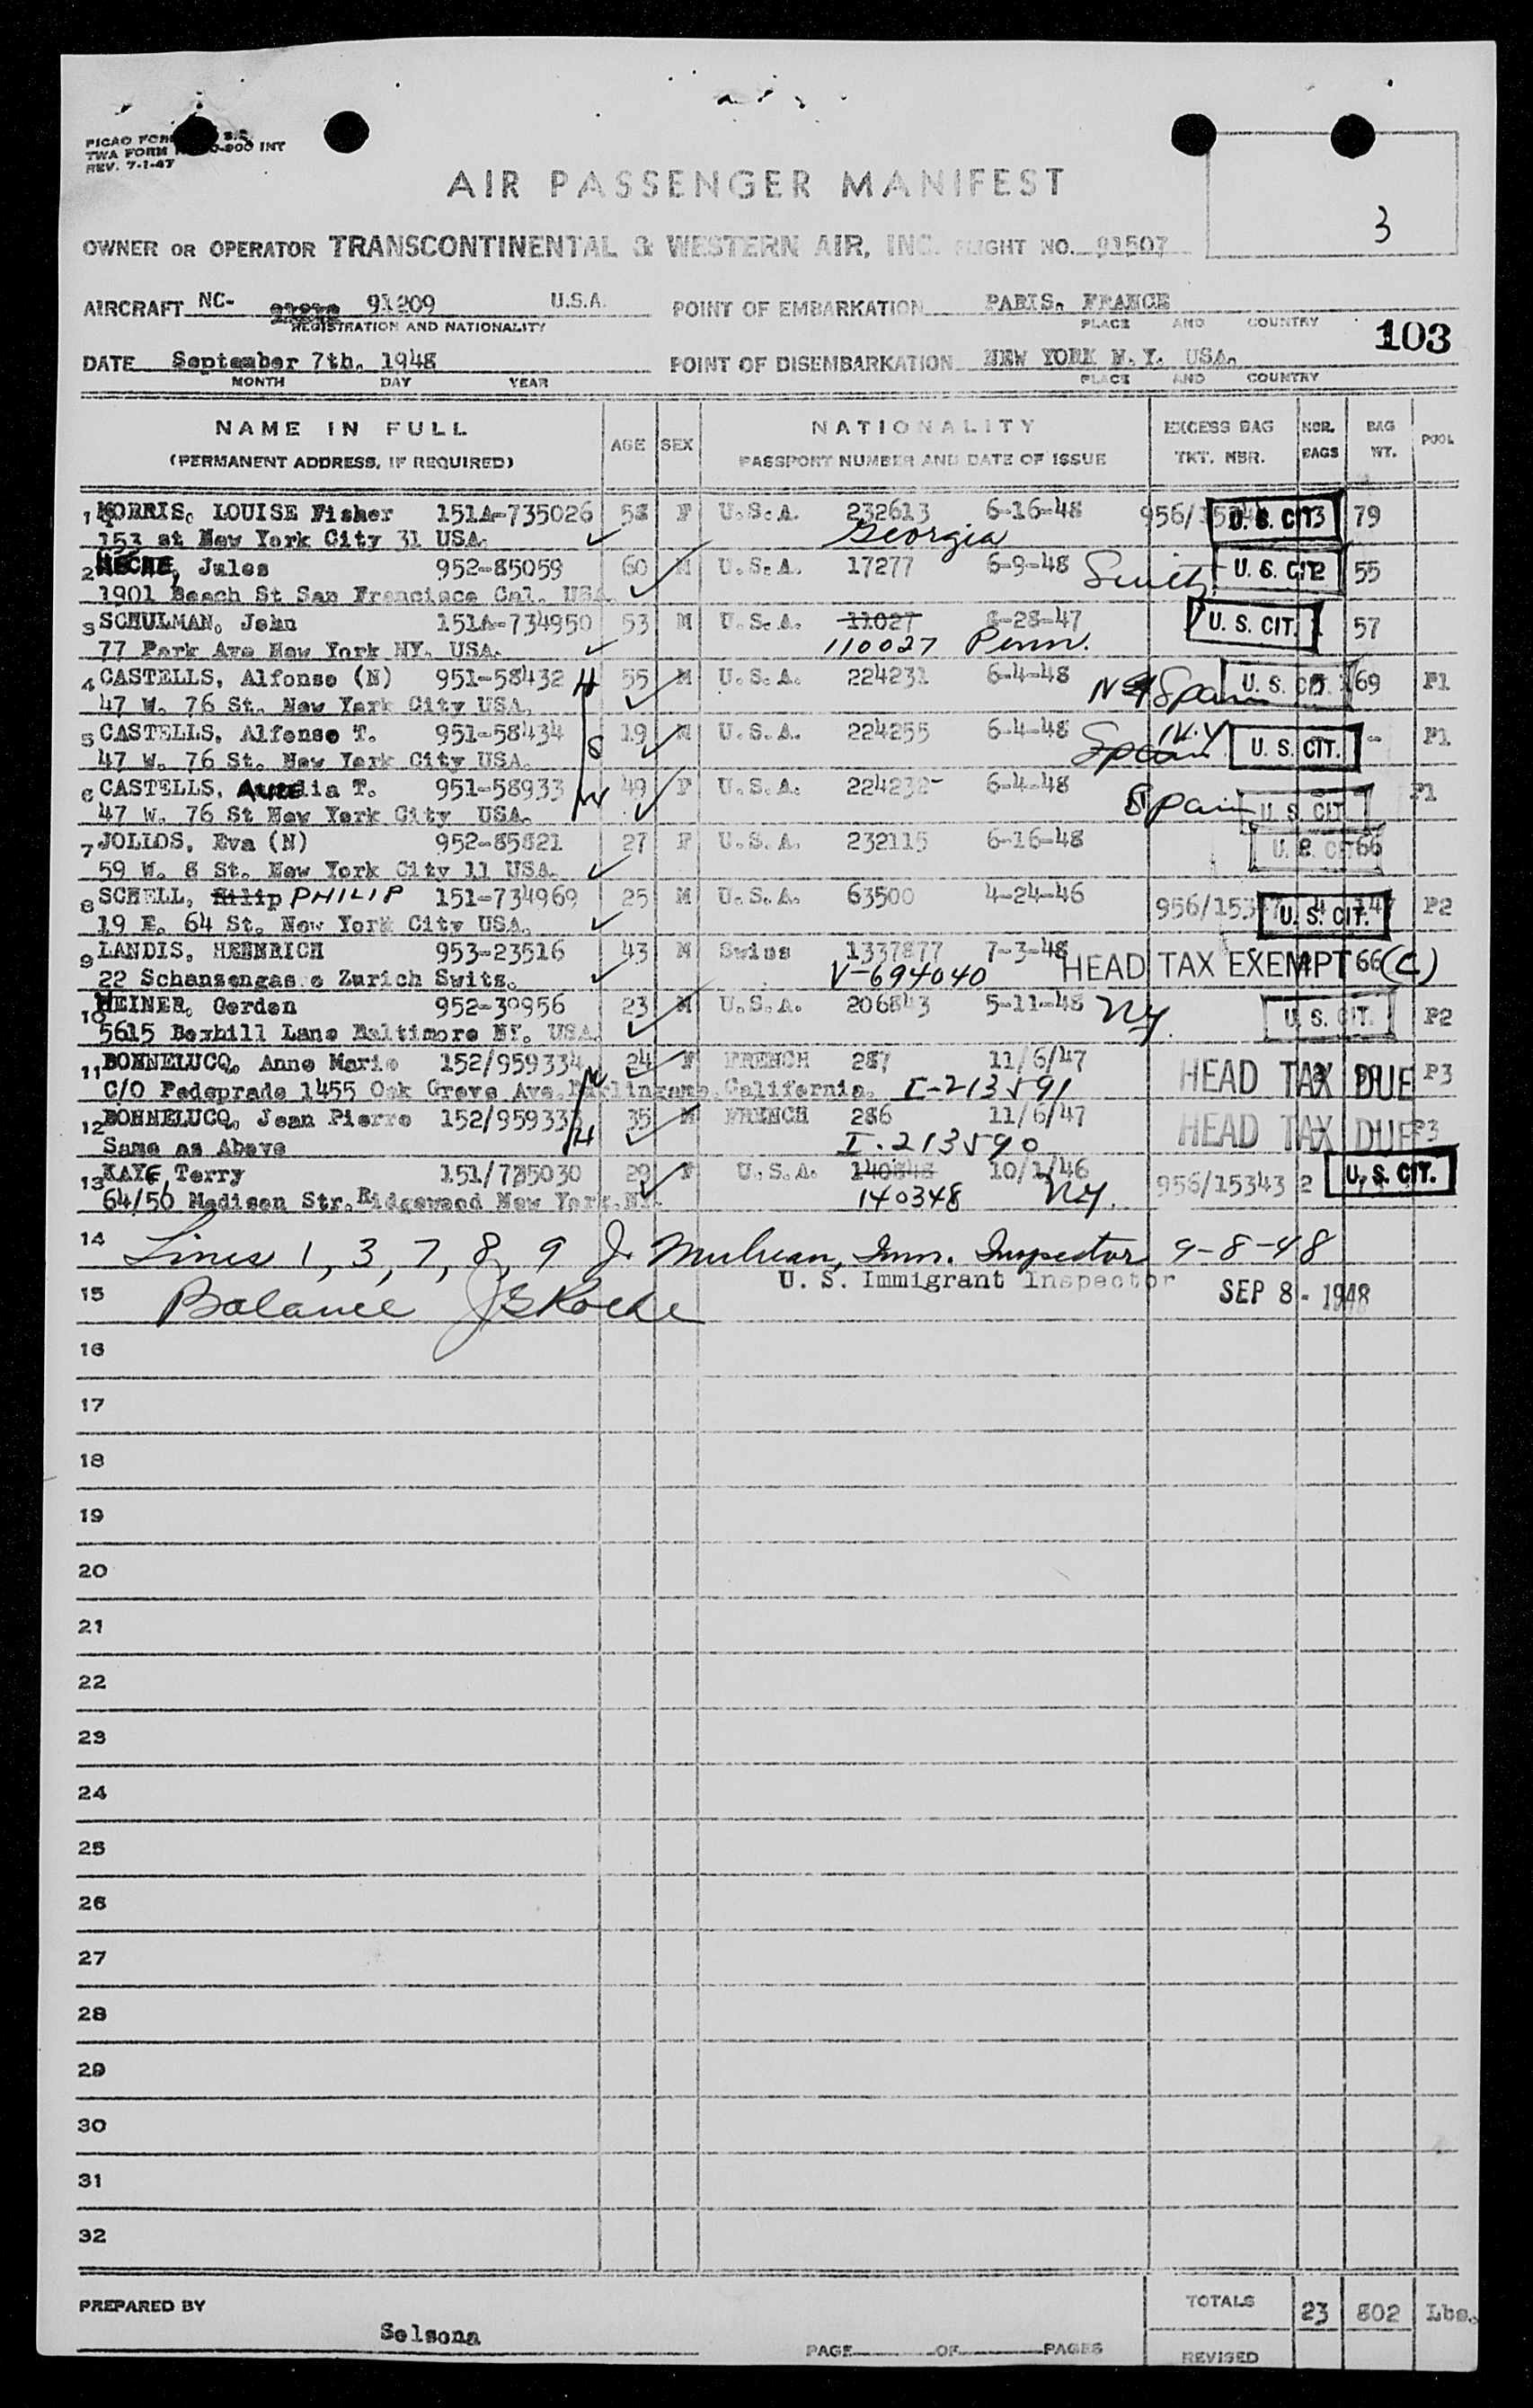 PICAO FORM
TWA FORM 0-800 INT
REV. 7-1-47
AIR PASSENGER MANIFEST
3
OWNER OR OPERATOR TRANSCONTINENTAL & WESTERN AIR, INC. FLIGHT NO. 91507
AIRCRAFT NC- 91209 U.S.A. POINT OF EMBARKATION PARIS, FRANCE
REGISTRATION AND NATIONALITY PLACE AND COUNTRY
103
DATE September 7th. 1948 POINT OF DISEMBARKATION NEW YORK N.Y. USA.
MONTH DAY YEAR PLACE AND COUNTRY
NAME IN FULL AGE SEX NATIONALITY EXCESS BAG NBR. BAG POOL
(PERMANENT ADDRESS, IF REQUIRED) PASSPORT NUMBER AND DATE OF ISSUE TKT. NBR. BAGS WT.
1 MORRIS, LOUISE Fisher 151A-735026 58 F U.S.A. 232613 6-16-48 956/ U. S. CIT 3 79
153 st New York City 31 USA. Georgia
2 Jules 952-85059 60 M U.S.A. 17277 6-9-48 U. S. CIT 2 55
1901 Beach St San Francisco Cal. USA.
3 SCHULMAN, John 151A-734950 53 M U.S.A. 11027 8-28-47 U. S. CIT. 57
77 Park Ave New York NY. USA. 110027 Penn.
4 CASTELLS, Alfonso (N) 951-58432 H 55 M U.S.A. 224231 6-4-48 Spain U. S. CIT. 169 P1
47 W. 76 St. New York City USA.
5 CASTELLS, Alfonso T. 951-58434 S 19 M U.S.A. 224255 6-4-48 Spain U. S. CIT. - P1
47 W. 76 St. New York City USA.
6 CASTELLS, Aurelia T. 951-58933 W 49 F U.S.A. 224232- 6-4-48 Spain U. S. CIT. P1
47 W. 76 St New York City USA.
7 JOLLOS, Eva (N) 952-85821 27 F U.S.A. 232115 6-16-48 U. S. CIT 66
59 W. 8 St. New York City 11 USA.
8 SCHELL, Filip PHILIP 151-734969 25 M U.S.A. 63500 4-24-46 956/153 U. S. CIT. 147 P2
19 E. 64 St. New York City USA.
9 LANDIS, HEINRICH 953-23516 43 M Swiss 1337877 7-3-48 HEAD TAX EXEMPT 66 (C)
22 Schanzengasse Zurich Switz. V-694040
10 HEINER, Gordon 952-30956 23 M U.S.A. 206843 5-11-48 NY. U. S. CIT. P2
5615 Boxhill Lane Baltimore MY. USA.
11 BONNELUCQ, Anne Marie 152/959334 W 24 F FRENCH 287 11/6/47 HEAD TAX DUE P3
C/O Pedeprade 1455 Oak Grove Ave. Burlingame. California. I-213591
12 BONNELUCQ, Jean Pierre 152/959333 H 35 M FRENCH 286 11/6/47 HEAD TAX DUE P3
Same as Above I.213590
13 KAYE, Terry 151/735030 29 F U.S.A. 140848 10/1/46 956/15343 2 U. S. CIT.
64/50 Madison Str. Ridgewood New York. NY. 140348 NY.
14 Lines 1, 3, 7, 8, 9 J. Mulrean, Imm. Inspector 9-8-48
U. S. Immigrant Inspector
15 Balance SEP 8 - 1948
16
17
18
19
20
21
22
23
24
25
26
27
28
29
30
31
32
PREPARED BY Solsona
TOTALS 23 802 Lbs.
PAGE OF PAGES REVISED